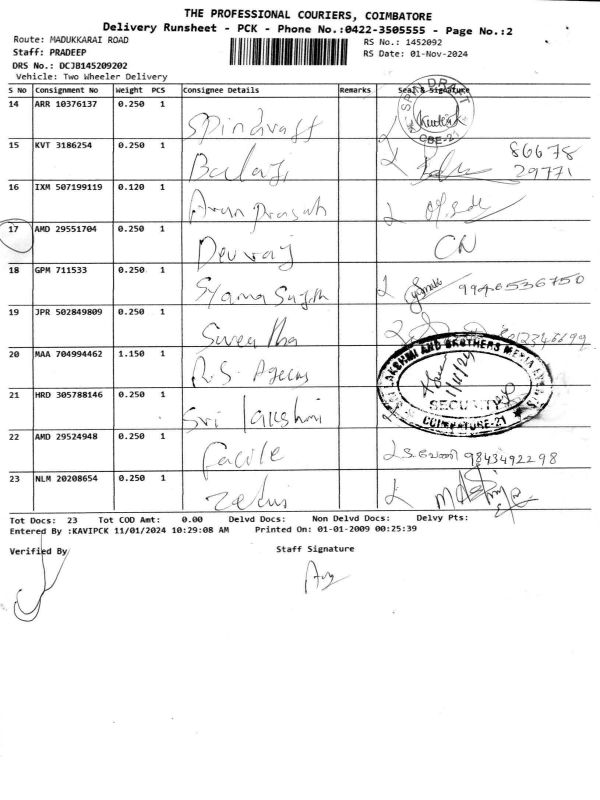 THE PROFESSIONAL COURIERS, COIMBATORE
Delivery Runsheet - PCK - Phone No.:0422-3505555 - Page No.:2
Route: MADUKKARAI ROAD RS No.: 1452092
Staff: PRADEEP RS Date: 01-Nov-2024
DRS No.: DCJB145209202
Vehicle: Two Wheeler Delivery
S No Consignment No Weight PCS Consignee Details Remarks Seal & Signature
14 ARR 10376137 0.250 1 Spindraft
SPINDRAFT CBE-21
15 KVT 3186254 0.250 1 Balaji 86678
29771
16 IXM 507199119 0.120 1 Arun Prasath
17 AMD 29551704 0.250 1 Devraj CN
18 GPM 711533 0.250 1 Syama Sujith 9946536750
19 JPR 502849809 0.250 1 Swetha
20 MAA 704994462 1.150 1 R.S. Agency
SRI LAKSHMI AND BROTHERS MEDIA EVENTS
1/11/24
SECURITY
COIMBATORE-21
21 HRD 305788146 0.250 1 Sri Lakshmi
22 AMD 29524948 0.250 1 Facile 9843492298
23 NLM 20208654 0.250 1
Tot Docs: 23 Tot COD Amt: 0.00 Delvd Docs: Non Delvd Docs: Delvy Pts:
Entered By :KAVIPCK 11/01/2024 10:29:08 AM Printed On: 01-01-2009 00:25:39
Verified By Staff Signature